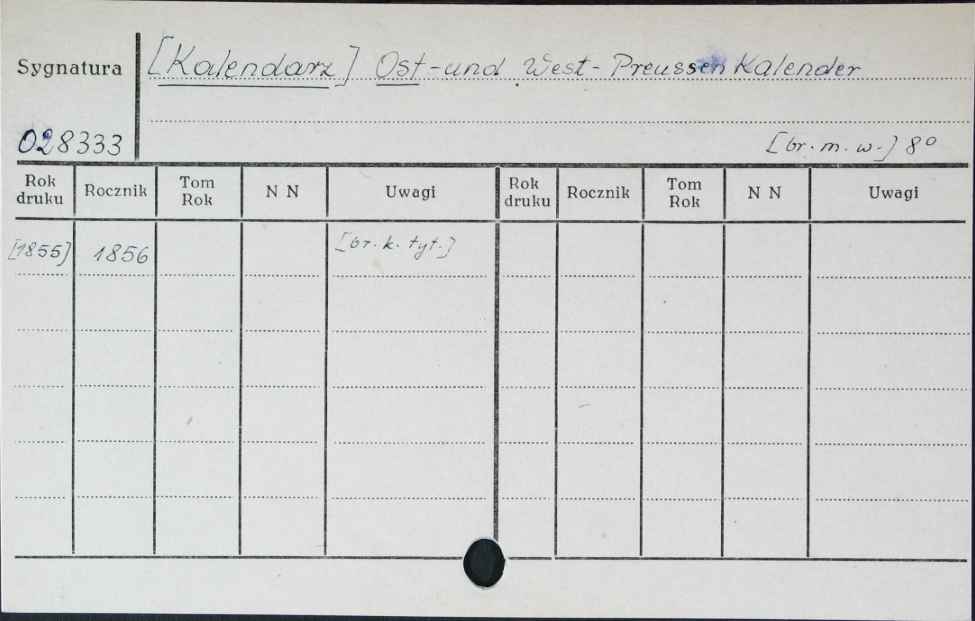 Sygnatura [Kalendarz] Ost-und West-Preussen Kalender
028333 [br. m. w.] 8º
Rok druku Rocznik Tom Rok N N Uwagi Rok druku Rocznik Tom Rok N N Uwagi
[1855] 1856 [br. k. tyt.]